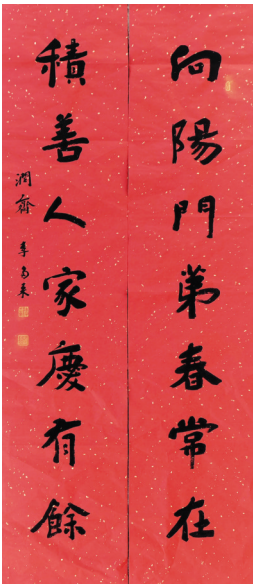 向陽門弟春常在
積善人家慶有餘
潤齋 李高來